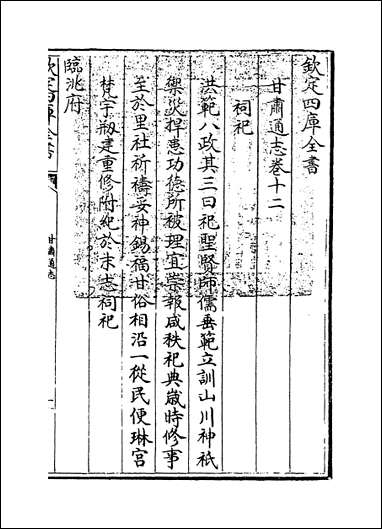 欽定四庫全書
甘肅通志卷十二
祠祀
洪範八政其三曰祀聖賢師儒垂範立訓山川神祇
禦災捍患功徳所被理宜崇報咸秩祀典歳時修事
至於里社祈禱妥神錫福甘俗相沿一從民便琳宮
梵宇剏建重修附紀於末志祠祀
臨洮府
欽定四庫全書
甘肅通志
一